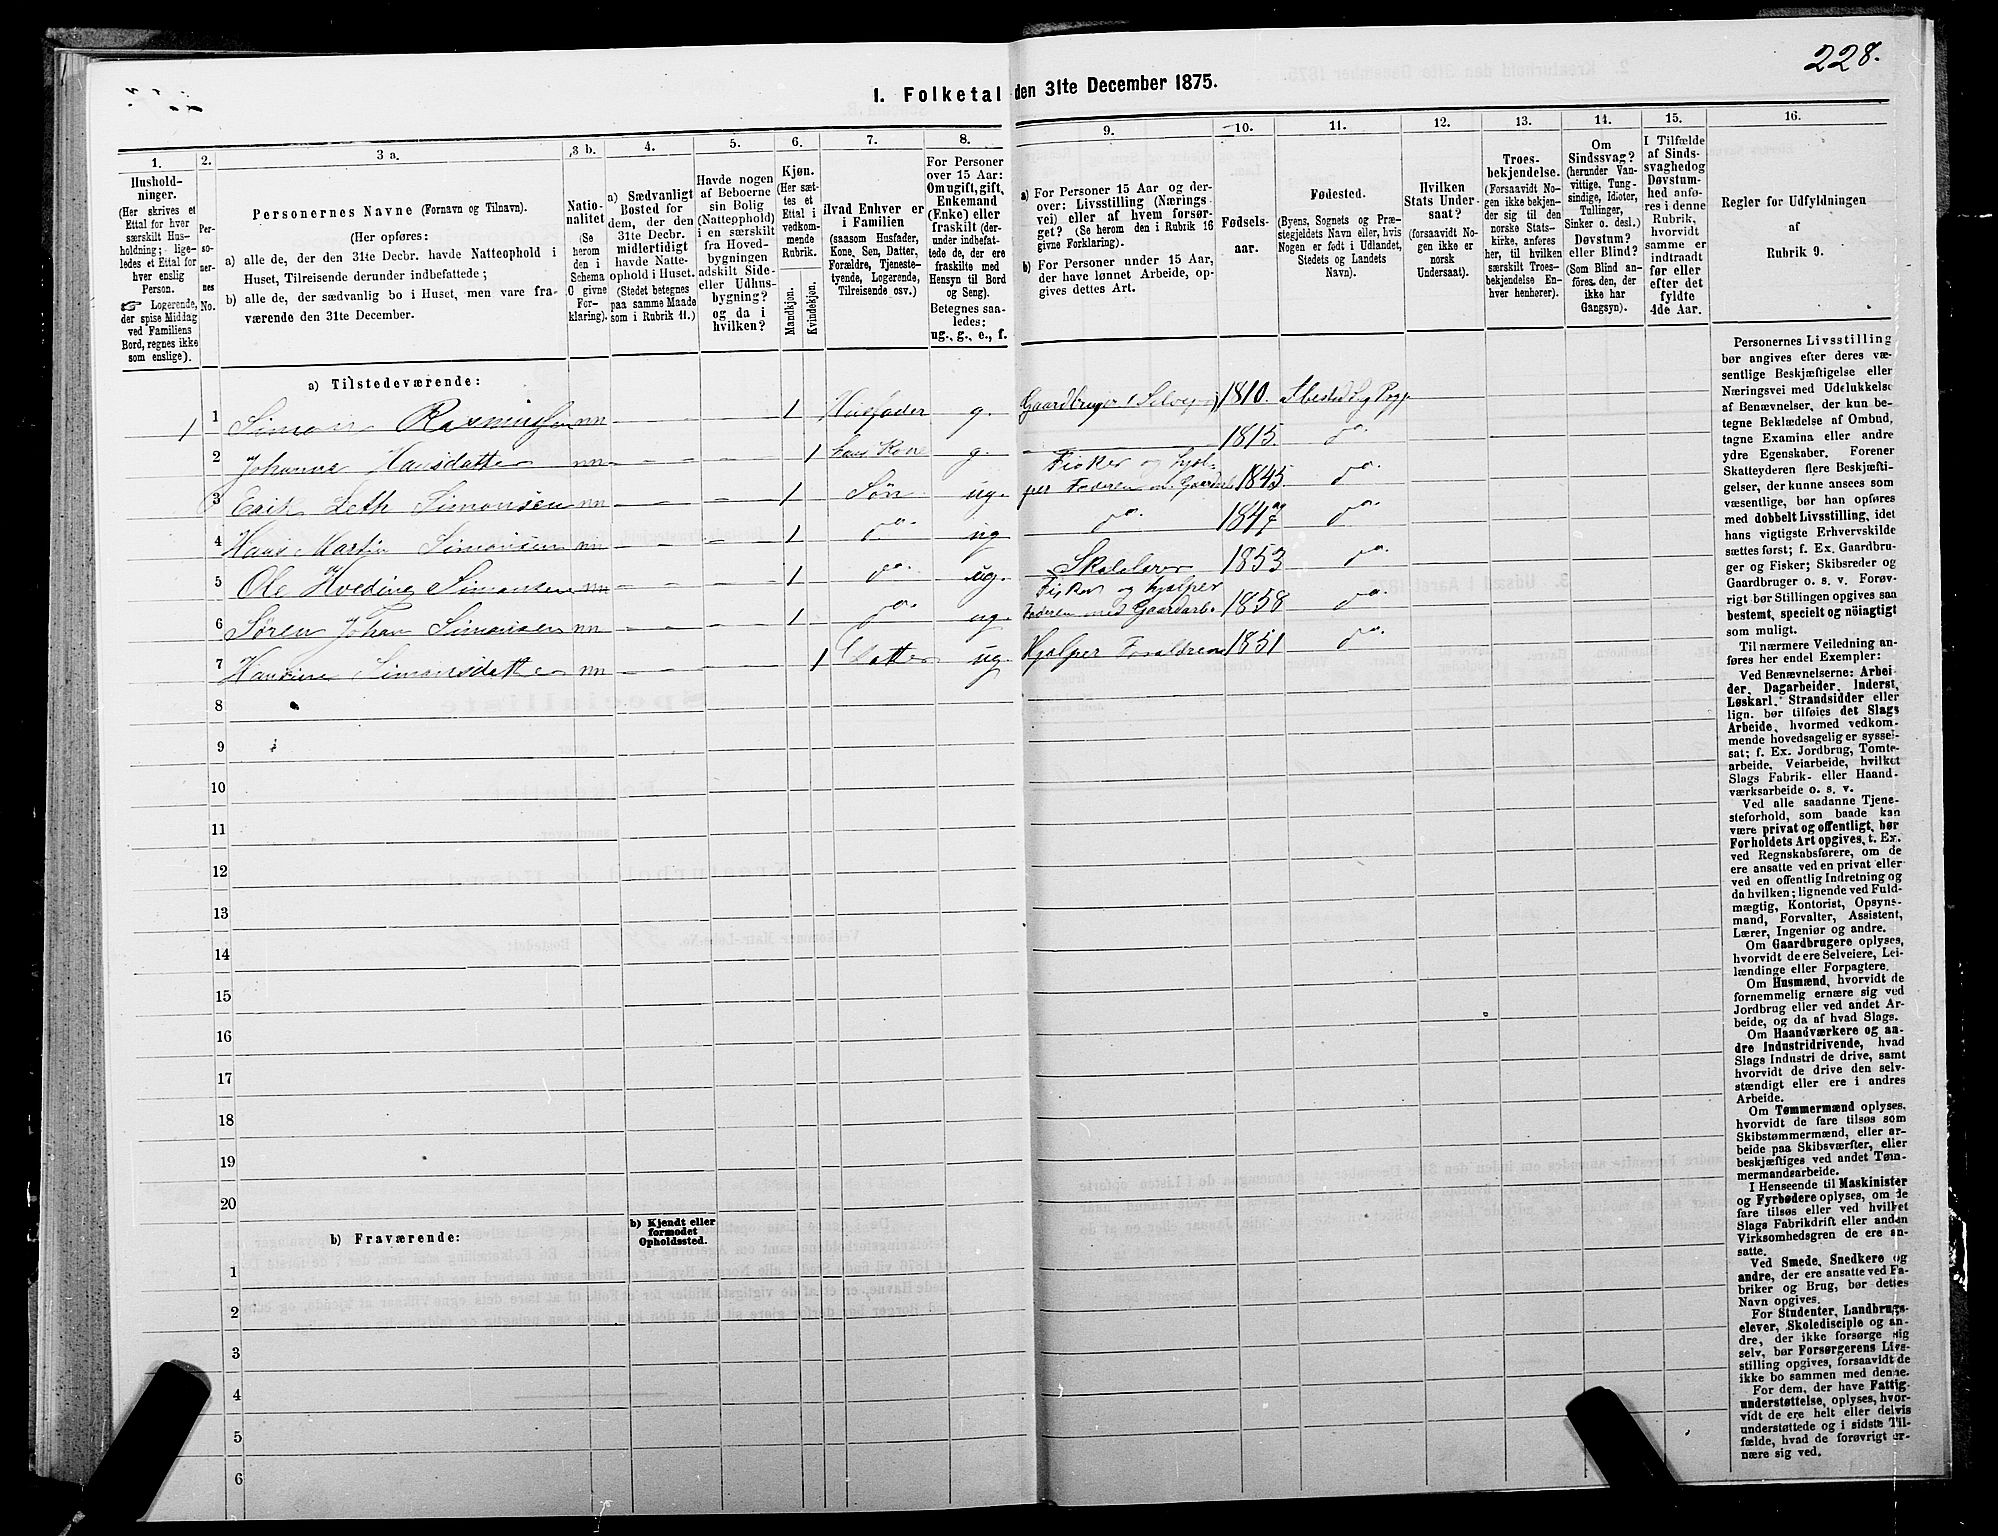 228.
1. Folketal den 31te December 1875.
1. 2. 3 a. 3 b. 4. 5. 6. 7. 8. 9. 10. 11. 12. 13. 14. 15. 16.
Husholdninger.
(Her skrives et
Ettal for hver
særskilt Husholdning;
ligeledes
et Ettal for
hver enslig
Person.
☞ Logerende,
der spise Middag
ved Familiens
Bord, regnes ikke
som enslige).
Personernes
No.
Personernes Navne (Fornavn og Tilnavn).
(Her opføres:
a) alle de, der den 31te Decbr. havde Natteophold i
Huset, Tilreisende derunder indbefattede;
b) alle de, der sædvanlig bo i Huset, men vare fraværende
den 31te December.
Nationalitet
(Se
herom
den i
Schema
O givne
Forklaring).
a) Sædvanligt
Bosted for
dem, der den
31te Decbr.
midlertidigt
havde Natteophold
i Huset.
(Stedet betegnes
paa samme Maade
som i Rubrik 11.)
Havde nogen
af Beboerne
sin Bolig
(Natteophold)
i en særskilt
fra Hovedbygningen
adskilt Side-
eller Udhusbygning?
og da i
hvilken?
Kjøn.
(Her sættes
et
Ettal i
vedkommende
Rubrik.
Mandkjøn.
Kvindekjøn.
Hvad Enhver er
i Familien
(saasom Husfader,
Kone, Søn, Datter,
Forældre, Tjenestetyende,
Logerende,
Tilreisende osv.)
For Personer
over 15 Aar:
Om ugift, gift,
Enkemand
(Enke) eller
fraskilt (derunder
indbefattede
de, der ere
fraskilte med
Hensyn til Bord
og Seng).
Betegnes saaledes:
ug., g., e., f.
a) For Personer 15 Aar og derover:
Livsstilling (Næringsvei)
eller af hvem forsørget?
(Se herom den i Rubrik 16
givne Forklaring).
b) For Personer under 15 Aar,
der have lønnet Arbeide, opgives
dettes Art.
Fødselsaar.
Fødested.
(Byens, Sognets og Præstegjeldets
Navn eller, hvis
Nogen er født i Udlandet,
Stedets og Landets
Navn).
Hvilken
Stats Undersaat?
(forsaavidt Nogen
ikke er
norsk
Undersaat).
Troesbekjendelse.
(Forsaavidt Nogen
ikke bekjender
sig til den
norske Statskirke,
anføres
her, til hvilken
særskilt Troesbekjendelse
Enhver
henhører).
Om
Sindssvag?
(herunder Vanvittige,
Tungsindige,
Idioter,
Tullinger,
Sinker o. desl.)
Døvstum?
eller Blind?
(Som Blind anføres
den, der
ikke har
Gangsyn).
I Tilfælde
af Sindssvaghed
og
Døvstumhed
anføres
i denne
Rubrik,
hvorvidt
samme er
indtraadt
før eller
efter det
fyldte
4de Aar.
Regler for Udfyldningen
af
Rubrik 9.
a) Tilstedeværende:
1 1 Simon Rasmussen nn — — 1 Husfader g. Gaardbruger 1810.
2 Johanna Hansdatter nn — — 1 hans Kone g. — 1815. do.
3 Erik Leth Simonsen nn — — 1 Søn ug. Fisker og hjælper Faderen m. Gaardarb. 1845 do.
4 Hans Martin Simonsen nn — — 1 do. ug do. 1847 do.
5 Ole Hveding Simonsen nn — — 1 do. ug. 1853 do.
6 Søren Johan Simonsen nn — — 1 do. ug. Fisker og hjælper Faderen med Gaardarb. 1858 do.
7 Hansine Simonsdatter nn — — 1 Datter ug. Hjælper Forældrene 1851 do.
8
9
10
11
12
13
14
15
16
17
18
19
20
b) Fraværende:
b) Kjendt eller
formodet
Opholdssted.
1
2
3
4
5
6
Personernes Livsstilling
bør angives efter deres væsentlige
Beskjæftigelse eller
Næringsvei med Udelukkelse
af Benævnelser, der kun betegne
Beklædelse af Ombud,
tagne Examina eller andre
ydre Egenskaber. Forener
Skatteyderen flere Beskjæftigelser,
der kunne ansees som
væsentlige, bør han opføres
med dobbelt Livsstilling, idet
hans vigtigste Erhvervskilde
sættes først; f. Ex. Gaardbruger
og Fisker; Skibsreder og
Gaardbruger o. s. v. Forøvrigt
bør Stillingen opgives saa
bestemt, specielt og nöiagtigt
som muligt.
Til nærmere Veiledning anføres
her endel Exempler:
Ved Benævnelserne: Arbeider,
Dagarbeider, Inderst,
Løskarl, Strandsidder eller
lign. bør tilføies det Slags
Arbeide, hvormed vedkommende
hovedsagelig er sysselsat;
f. Ex. Jordbrug, Tomtearbeide,
Veiarbeide, hvilket
Slags Fabrik- eller Haandværksarbeide
o. s. v.
Ved alle saadanne Tjenesteforhold,
som baade kan
være privat og offentligt, bør
Forholdets Art opgives, t. Ex.
ved Regnskabsførere, om de
ere ansatte ved en privat eller
ved en offentlig Indretning og
da hvilken; lignende ved Fuldmægtig,
Kontorist, Opsynsmand,
Forvalter, Assistent,
Lærer, Ingeniør og andre.
Om Gaardbrugere oplyses,
hvorvidt de ere Selveiere, Leilændinge
eller Forpagtere.
Om Husmænd, hvorvidt de
fornemmelig ernære sig ved
Jordbrug eller ved andet Arbeide,
og da af hvad Slags.
Om Haandværkere og andre
Industridrivende, hvad
Slags Industri de drive, samt
hvorvidt de drive den selvstændigt
eller ere i andres
Arbeide.
Om Tømmermænd oplyses,
hvorvidt de fare tilsøs som
Skibstømmermænd, eller arbeide
paa Skibsværfter, eller
beskjæftiges ved andet Tømmermandsarbeide.
I Henseende til Maskinister
og Fyrbødere oplyses, om de
fare tilsøs eller ved hvilket
Slags Fabrikdrift eller anden
Virksomhedsgren de ere ansatte.
Ved Smede, Snedkere og
andre, der ere ansatte ved Fabriker
og Brug, bør dettes
Navn opgives.
For Studenter, Landbrugselever,
Skoledisciple og andre,
der ikke forsørge sig
selv, bør Forsørgerens Livsstilling
opgives, forsaavidt de
ikke bo sammen med denne.
For dem, der have Fattigunderstøttelse,
oplyses, hvorvidt
de ere helt eller delvis
understøttede og i sidste Tilfælde,
hvad de forøvrigt ernære
sig ved.